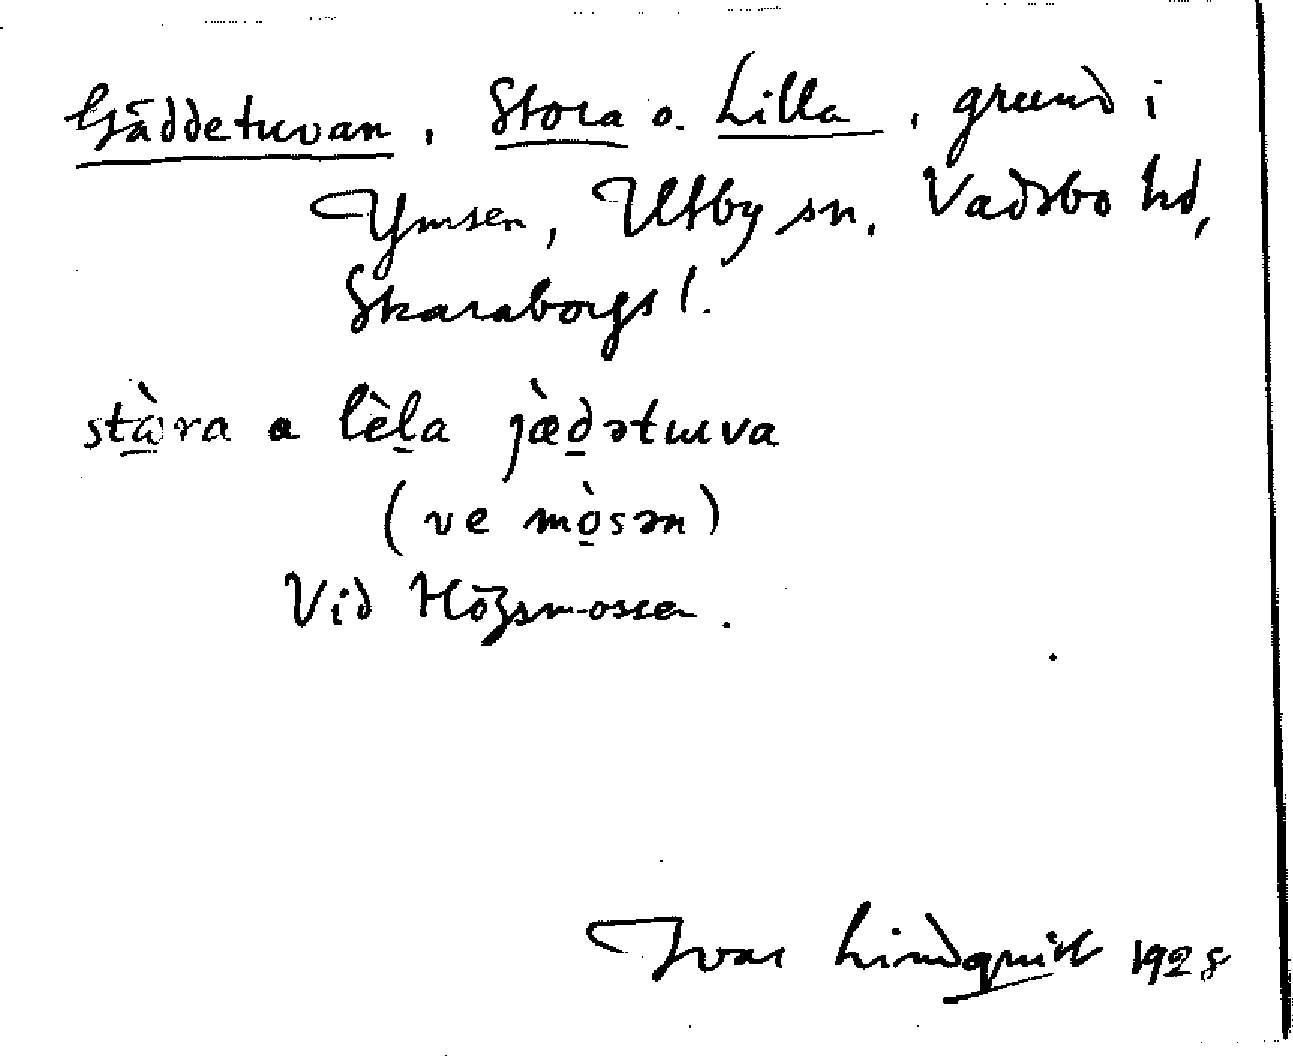 Gäddetuvan, Stora o. Lilla, grund i
Ymsen, Utby sn, Vadsbo hd,
Skaraborgs l.
stɑ̱̀ra a lèḻa jæ̀ḏətɯva
(ve mò̱sən)
Vid Högsmossen.
Ivar Lindquist 1928